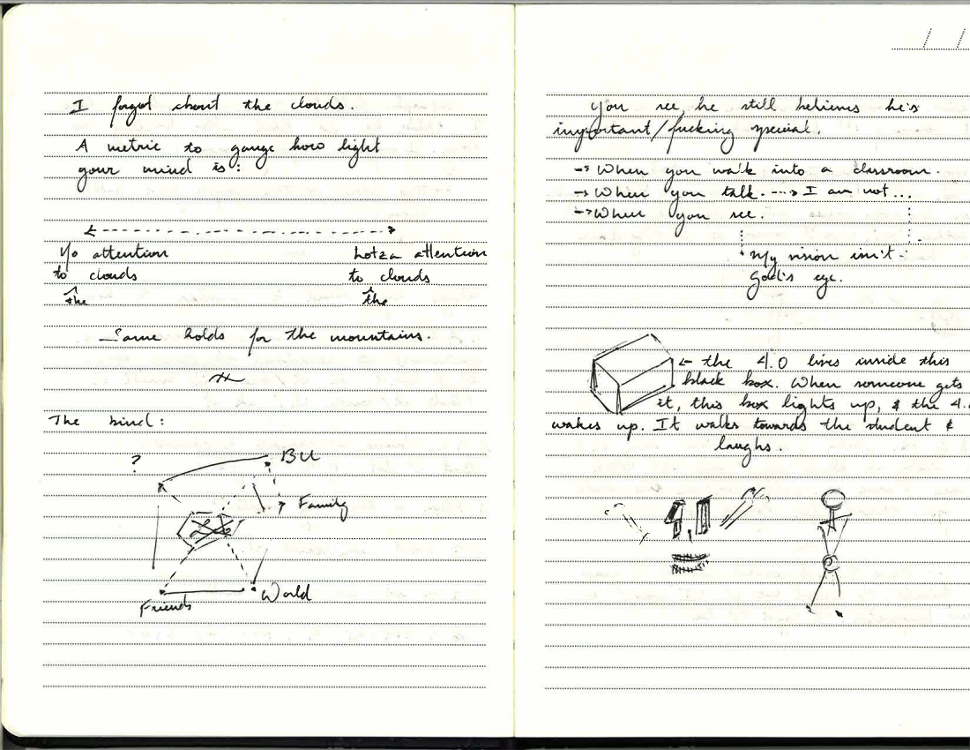 I forgot about the clouds.
A metric to gauge how light
your mind is:
No attention
to clouds
^
the
Lotza attention
to clouds
^
the
Same holds for the mountains.
The bind:
?
BU
Family
Friends
World
/ /
You see, he still believes he's
important/fucking special.
→ When you walk into a classroom.
→ When you talk. ---> I am not...
→ When you see.
My vision isn't
God's eye.
← the 4.0 lives inside this
black box. When someone gets
it, this box lights up, & the 4.0
wakes up. It walks towards the student &
laughs.
4.0